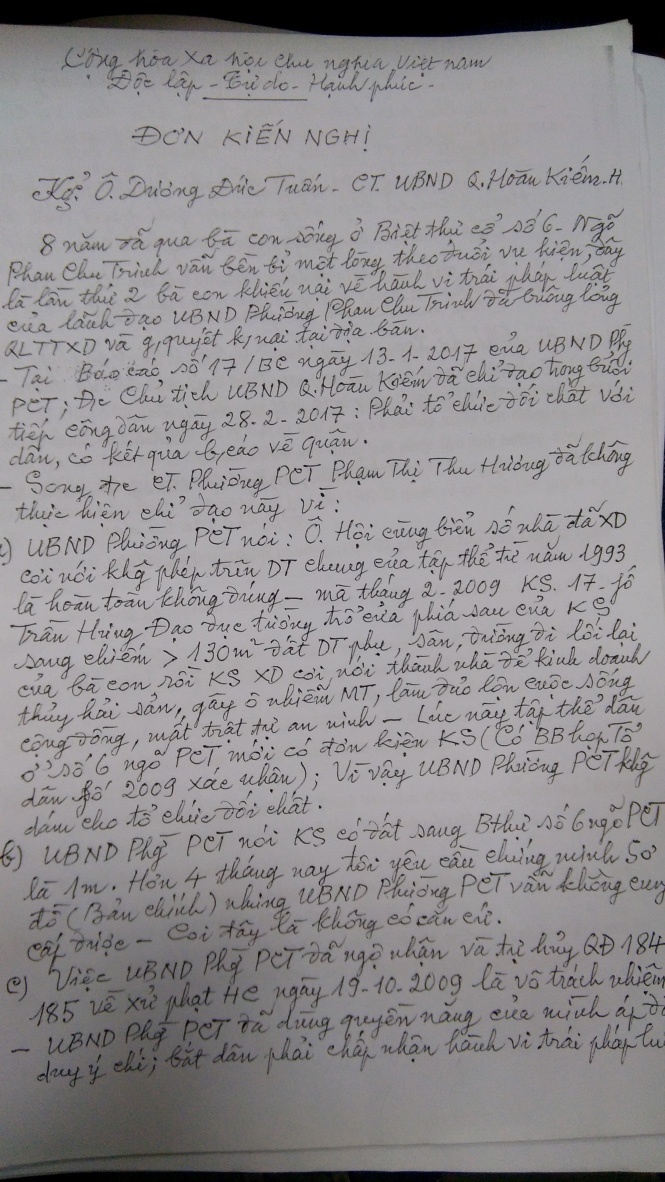 Cộng hòa xã hội chủ nghĩa Việt nam
Độc lập - Tự do - Hạnh phúc -
ĐƠN KIẾN NGHỊ
Kg: Ô. Dương Đức Tuấn - CT. UBND Q. Hoàn Kiếm - H.
8 năm đã qua bà con sống ở Biệt thự cổ số 6 - Ngõ
Phan Chu Trinh vẫn bền bỉ một lòng theo đuổi vụ kiện, đây
là lần thứ 2 bà con khiếu nại về hành vi trái pháp luật
của lãnh đạo UBND Phường Phan Chu Trinh đã buông lỏng
QLTTXD và g, quyết k, nại tại địa bàn.
- Tại Báo cáo số 17/BC ngày 13-1-2017 của UBND Phg
PCT; Đ/c Chủ tịch UBND Q. Hoàn Kiếm đã chỉ đạo trong buổi
tiếp công dân ngày 28-2-2017: Phải tổ chức đối chất với
dân, có kết quả b, cáo về quận.
- Song đ/c CT. Phường PCT Phạm Thị Thu Hương đã không
thực hiện chỉ đạo này vì:
) UBND Phường PCT nói: Ô. Hội cùng biển số nhà đã XD
cơi nới khg phép trên DT chung của tập thể từ năm 1993
là hoàn toàn không đúng - mà tháng 2-2009 KS. 17 - fố
Trần Hưng Đạo đục tường trổ cửa phía sau của KS
sang chiếm > 130m² đất DT phụ, sân, đường đi lối lại
của bà con rồi KS XD cơi nới thành nhà để kinh doanh
thủy hải sản, gây ô nhiễm MT, làm đảo lộn cuộc sống
cộng đồng, mất trật tự an ninh - Lúc này tập thể dân
ở số 6 ngõ PCT mới có đơn kiện KS (Có BB họp Tổ
dân fố 2009 xác nhận); Vì vậy UBND Phường PCT khg
dám cho tổ chức đối chất.
b) UBND Phg PCT nói KS có đất sang Bthự số 6 ngõ PCT
là 1m. Hơn 4 tháng nay tôi yêu cầu chứng minh Sơ
đồ (Bản chính) nhưng UBND Phường PCT vẫn không cung
cấp được - Coi đây là không có căn cứ.
c) Việc UBND Phg PCT đã ngộ nhận và tự hủy QĐ 184
185 về xử phạt HC ngày 19-10-2009 là vô trách nhiệm
- UBND Phg PCT đã dùng quyền năng của mình áp đ
duy ý chí; bắt dân phải chấp nhận hành vi trái pháp lu